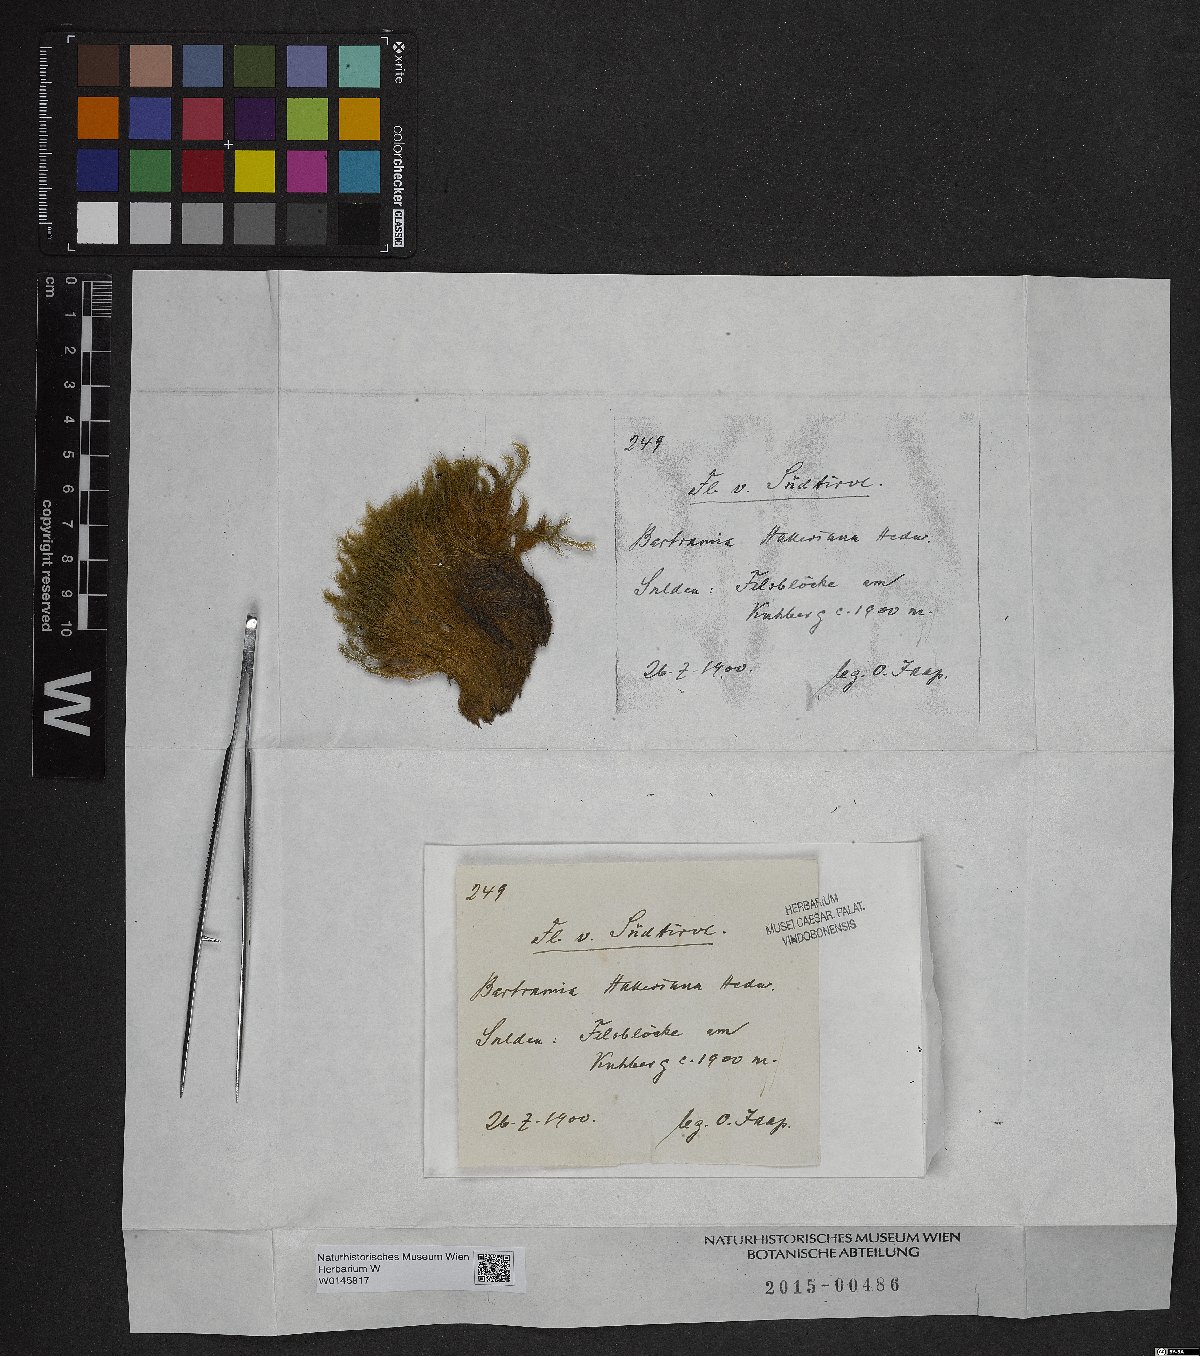 x-rite
colorchecker CLASSIC
cm
0 1 2 3 4 5 6 7 8 9 10
copyright reserved
W
249
Fl. v. Südtirol.
Bartramia Halleriana Hedw.
Sulden: Felsblöcke am
Kuhberg c. 1900 m.
26.7.1900. leg. O. Jaap.
249
Fl. v. Südtirol.
Bartramia Halleriana Hedw.
Sulden: Felsblöcke am
Kuhberg c. 1900 m.
26.7.1900. leg. O. Jaap.
HERBARIUM
MUSEI CAESAR. PALAT.
VINDOBONENSIS
Naturhistorisches Museum Wien
Herbarium W
W0145817
NATURHISTORISCHES MUSEUM WIEN
BOTANISCHE ABTEILUNG
2015-00486